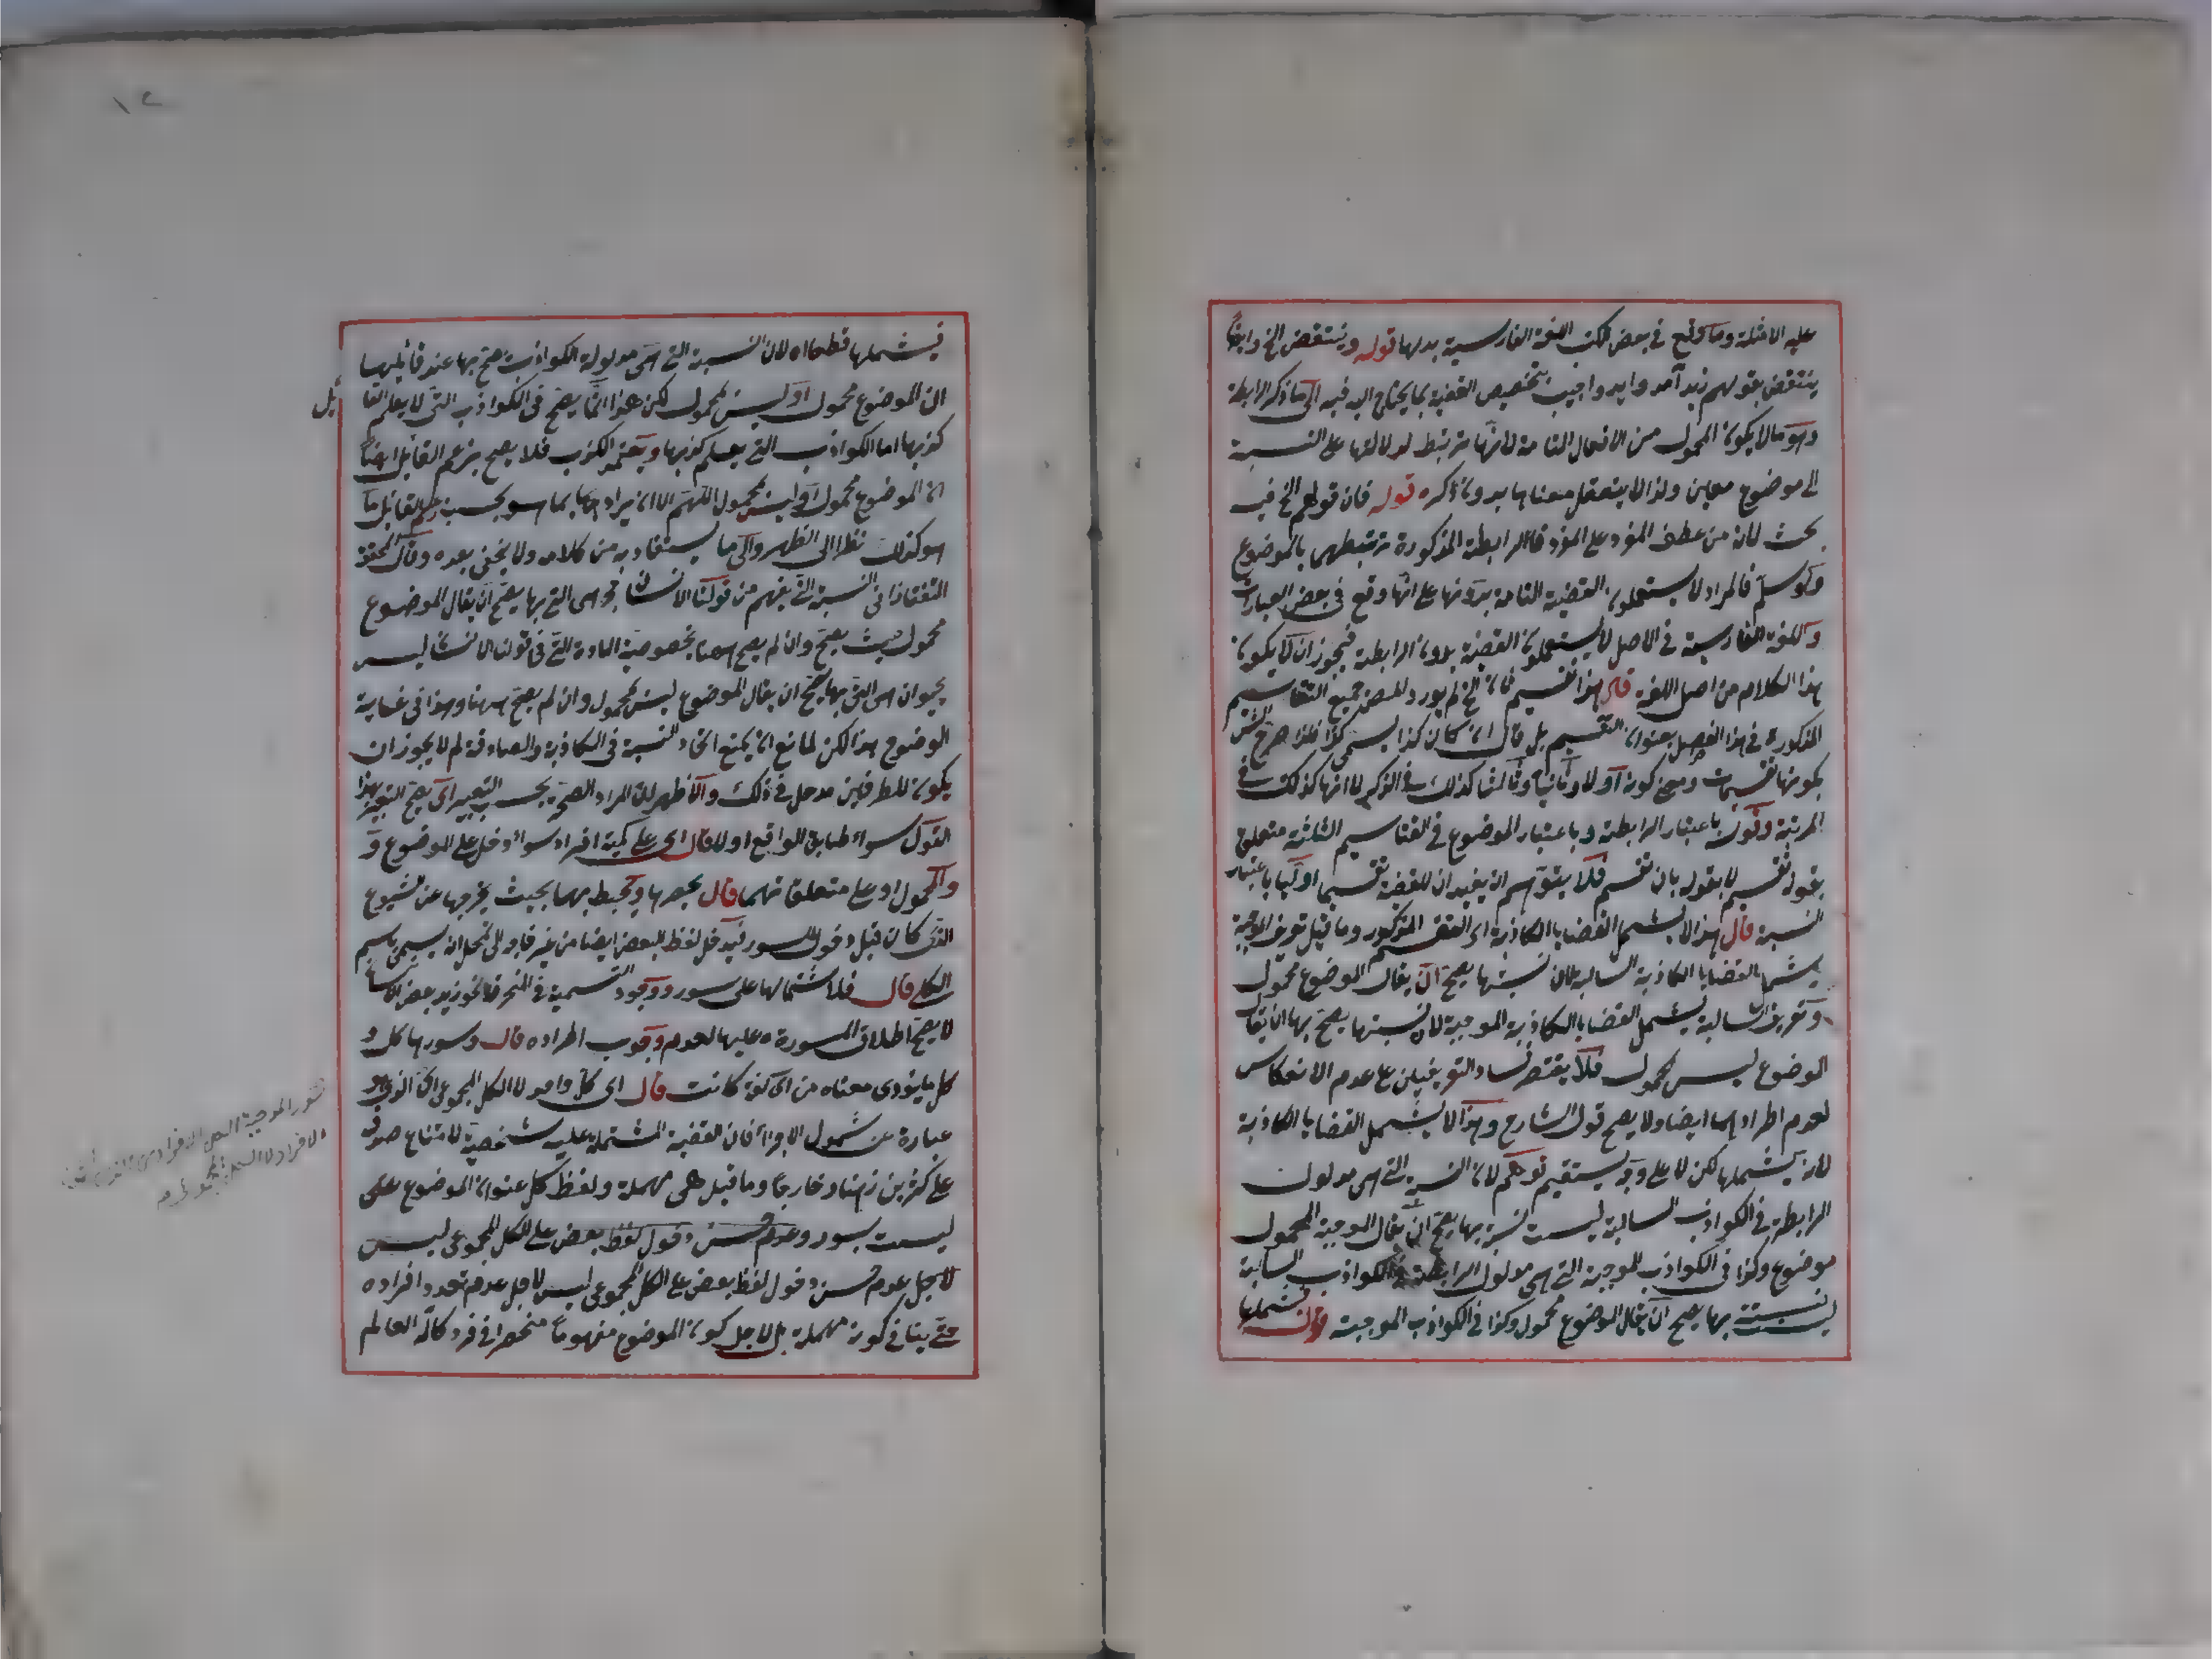 عليه الامثلة وما وقع في بعض الكتب اللغة الفارسية بدلها قوله وينتقض الخ وايضا
ينتقض بقولهم زيد آمد وايد واجيب بتخصيص القضية بما يحتاج اليه فيه الى ما ذكر الرابطة
وهو ما لا يكون المحمول من الافعال التامة لانها مرتبط لدلالتها على النسبة
الى موضوع معين ولذا لا يتعقل معناها بدون ذكره قوله فان قولهم الخ فيه
بحث لانه من عطف المفرد على المفرد فالرابطة المذكورة مرتبطهما بالموضوع
ولو سلم فالمراد لا يستعملون القضية التامة بدونها على انها وقع في بعض العبارات
واللغة الفارسية في الاصل لا يستعملون القضية بدون الرابطة فيجوز ان لا يكون
هذا الكلام من اصل اللغة قال هذا تقسيم ثان الخ لم يورد المصنف جميع التقاسيم
المذكورة في هذا الفصل بعنوان التقسيم بل قال ان كان كذا يسمى كذا فلذا صرح الش
بكونها تقسيمات ومعنى كونه اولا وثانيا وثالثا كذلك في الذكر لا انها كذلك في
المرتبة وقوله باعتبار الرابطة وباعتبار الموضوع في التقاسيم الثلثة متعلق
بقوله تقسيم لا بقوله بان تقسم فلا يتوهم ان يفيد ان للقضية تقسيما اوليا باعتبار
النسبة قال هذا لا يشمل القضايا الكاذبة اى التقسيم المذكور وما قيل تعريف الموجبة
يشمل القضايا الكاذبة السالبة لان نسبتها يصح ان يقال الموضوع محمول
وتعريف السالبة يشمل القضايا الكاذبة الموجبة لان نسبتها يصح بها ان يقال
الموضوع ليس بمحمول فلا يقتصر فساد التعريفين على عدم الانعكاس
لعدم اطرادهما ايضا ولا يصح قول الشارح وهذا لا يشمل القضايا الكاذبة
لانه يشملها لكن لا على وجه يستقيم توهم لان النسبة التي هي مدلول
الرابطة في الكواذب السالبة ليست نسبة بها يصح ان يقال الموجبة المحمول
موضوع وكذا في الكواذب الموجبة التي هي مدلول الرابطة في الكواذب السالبة
ليست نسبة بها يصح ان يقال الموضوع محمول وكذا في الكواذب الموجبة قوله فتشملها
١٢
فيشملها قطعا اه لان النسبة التي هي مدلولة الكواذب يصح بها عند قائلها
ان الموضوع محمول او ليس بمحمول لكن هذا انما يصح في الكواذب التي لا يعلم القائل
كذبها اما الكواذب التي يعلم كذبها ويتعمد الكذب فلا يصح بزعم القائل ايضا
ان الموضوع محمول او ليس بمحمول اللهم الا ان يراد بما هو بحسب زعم القائل ما
هو كذلك نظرا الى الظاهر والى ما يستفاد به من كلامه ولا يخفى بعده وقال المحقق
التفتازاني النسبة التي يفهم من قولنا الانسان حجر هي التي بها يصح ان يقال الموضوع
محمول حيث يصح وان لم يصح ههنا بخصوصية المادة التي في قولنا الانسان ليس
بحيوان هي التي بها يصح ان يقال الموضوع ليس بمحمول وان لم يصح ههنا وهذا في غاية
الوضوح هذا لكن لمانع ان يمنع اتحاد النسبة في الكاذبة والصادقة لم لا يجوز ان
يكون للطرفين مدخل في ذلك والاظهر ان المراد الصحة بحسب التعبير اى يصح التعبير بهذا
القول سواء طابق الواقع او لا قال اى على كمية افراد سواء دخل على الموضوع و
والمحمول او على متعلقاتهما قال يحصرها ويحيط بها بحيث يخرجها عن الشيوع
الذى كان قبل دخول السور فيدخل لفظ البعض ايضا
الكل قال فلاشتمالها على سور ووجود التسمية في المنحرفة نحو زيد بعض الانسان
لا يصح اطلاق المسورة عليها لعدم وجوب اطراده قال وسورها كل و
كل ما يؤدى معناه من اى لغة كانت قال اى كل واحد لا الكل المجموعى الذى هو
عبارة عن شمول الاجزاء فان القضية المشتملة عليه شخصية لامتناع صدق
على كثيرين ذهنا وخارجا وما قيل هى مهملة ولفظ كل عنوان الموضوع على
ليست بسور وعدم حسن دخول لفظ بعض على الكل المجموعى ليس
لاجل عدم حسن دخول لفظ بعض على الكل المجموعى ليس لاجل عدم تعدد افراده
حتى ينافي كونه مهملة بل لاجل كون الموضوع مفهوما منحصرا في فرد كاله العالم